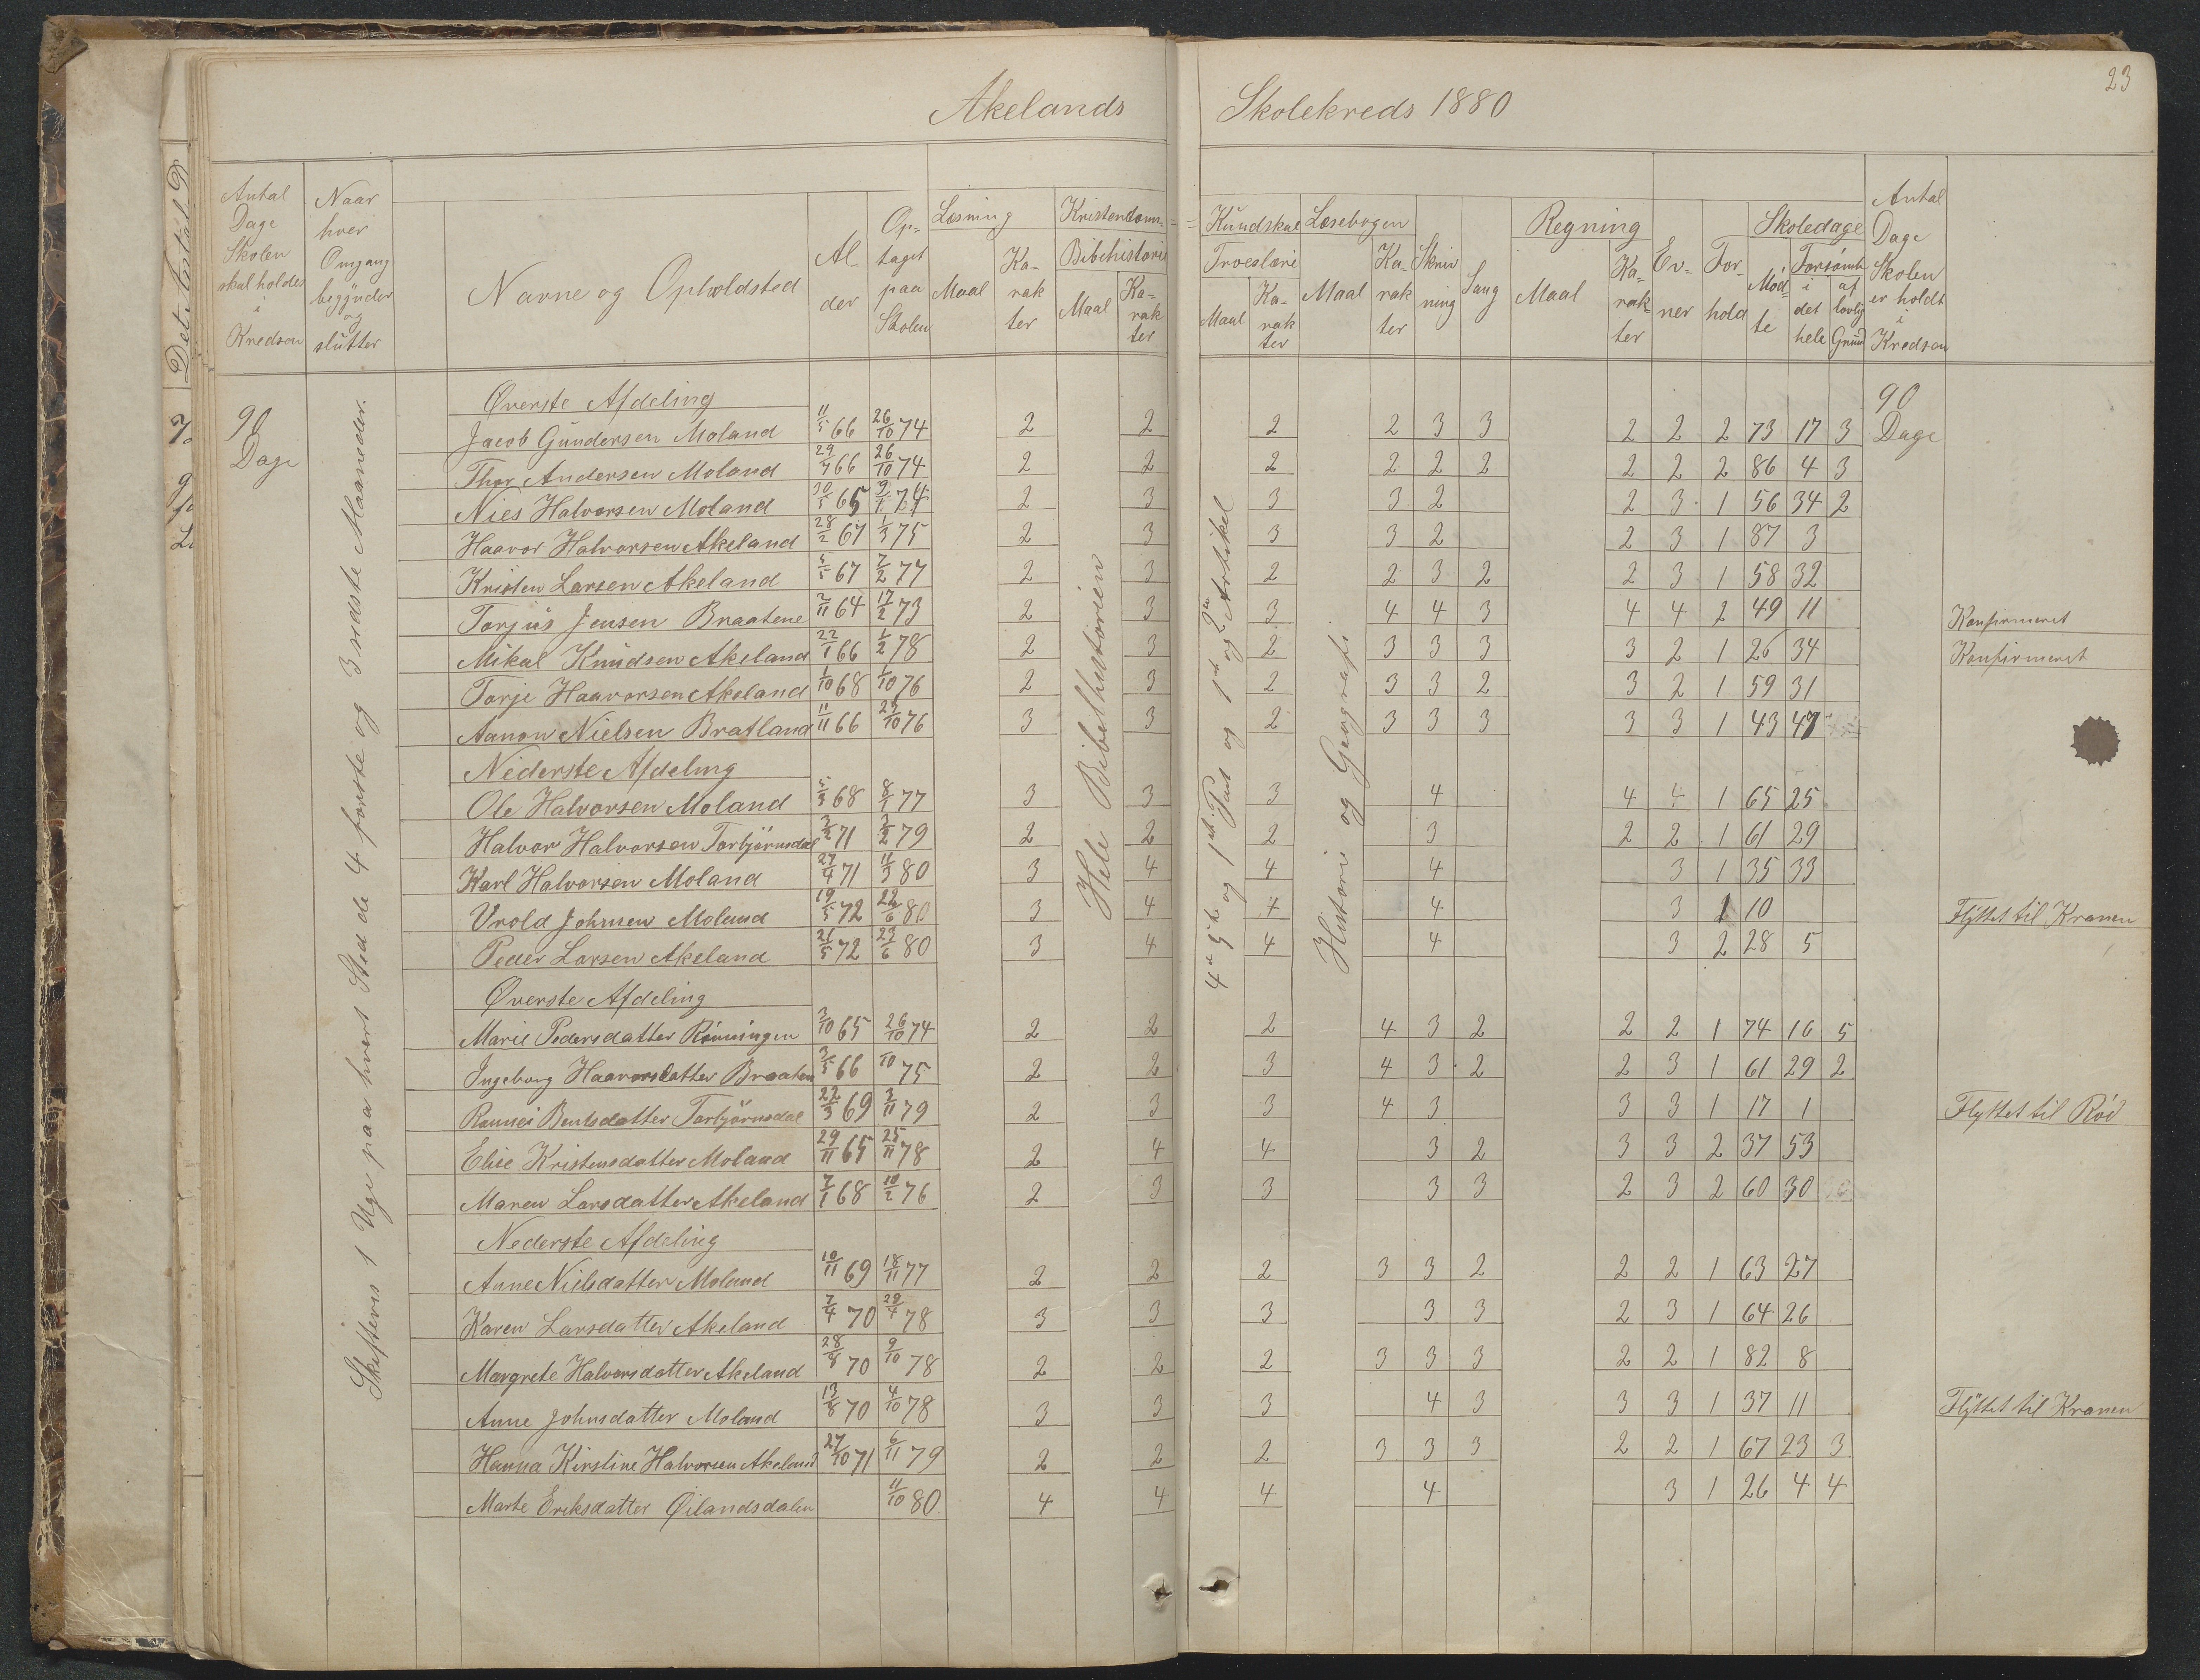 23
Akelands Skolekreds 1880
Antal Dage Skolen skal holdes i Kredsen
Naar hver Omgang begynder og slutter
Navne og Opholdsted
Alder
Optaget paa Skolen
Læsning
Maal
Karakter
Kristendoms=
Bibehistorie
Maal
Karakter
=Kundskal
Troeslære
Maal
Karakter
Læsebogen
Maal
Karakter
Skrivning
Sang
Regning
Maal
Karakter
Evner
Forhold
Skoledage
Mödte
Forsömte
i det hele
af lovlig Grund
Antal Dage Skolen er holdt i Kredsen
90 Dage
Skiftevis 1 Uge paa hvert Sted de 4 förste og 3 sidste Maaneder.
Hele Bibelhistorien
4de 5te og 1ste Part og 1ste og 2den Artikel
Historie og Geografi
90 Dage
Øverste Afdeling
Jacob Gundersen Moland 11/5 66 26/10 74 2 2 2 2 3 3 2 2 2 73 17 3
Thor Andersen Moland 29/7 66 26/10 74 2 2 2 2 2 2 2 2 2 86 4 3
Nies Halvorsen Moland 30/5 65 9/1 74 2 3 3 3 2 2 3 1 56 34 2
Haavor Halvorsen Akeland 28/2 67 1/3 75 2 3 3 3 2 2 3 1 87 3
Kristen Larsen Akeland 5/5 67 7/2 77 2 3 2 2 3 2 2 3 1 58 32
Torjus Jensen Braatene 2/11 64 17/2 73 2 3 3 4 4 3 4 4 2 49 11 Konfirmeret
Mikal Knudsen Akeland 22/1 66 1/2 78 2 3 2 3 3 3 3 2 1 26 34 Konfirmeret
Torje Haavorsen Akeland 1/10 68 1/10 76 2 3 2 3 3 2 3 2 1 59 31
Aanon Nielsen Bratland 11/11 66 23/10 76 3 3 2 3 3 3 3 3 1 43 47
Nederste Afdeling
Ole Halvorsen Moland 5/3 68 8/1 77 3 3 3 4 4 4 1 65 25
Halvor Halvorsen Torbjörnsdal 3/2 71 3/2 79 2 2 2 3 2 2 1 61 29
Karl Halvorsen Moland 27/4 71 11/3 80 3 4 4 4 3 1 35 33
Vrold Johnsen Moland 19/5 72 22/6 80 3 4 4 4 3 1 10 Flyttet til Kranen
Peder Larsen Akeland 21/5 72 23/6 80 3 4 4 4 3 2 28 5
Øverste Afdeling
Marie Pedersdatter Rönningen 3/10 65 26/10 74 2 2 2 4 3 2 2 2 1 74 16 5
Ingeborg Haavorsdatter Braaten 3/5 66 10 75 2 2 3 4 3 2 2 3 1 61 29 2
Rannei Bentsdatter Torbjörnsdal 22/3 69 3/11 79 2 3 3 4 3 3 3 1 17 1 Flyttet til Röd
Elise Kristensdatter Moland 29/11 65 25/11 78 2 4 4 3 2 3 3 2 37 53
Maren Larsdatter Akeland 7/1 68 10/2 76 2 3 3 3 3 2 3 2 60 30
Nederste Afdeling
Anne Nielsdatter Moland 10/11 69 18/11 77 2 2 2 3 3 2 2 2 1 63 27
Karen Larsdatter Akeland 7/4 70 29/4 78 3 3 3 3 3 2 3 1 64 26
Margrete Halvorsdatter Akeland 28/8 70 9/10 78 2 2 2 3 3 3 2 2 1 82 8
Anne Johnsdatter Moland 13/8 70 4/10 78 3 3 3 4 3 3 3 1 37 11 Flyttet til Kranen
Hanna Kirstine Halvorsen Akeland 27/10 71 6/11 79 2 2 2 3 3 3 2 2 1 67 23 3
Marte Eriksdatter Øilandsdalen 11/10 80 4 4 4 4 3 1 26 4 4